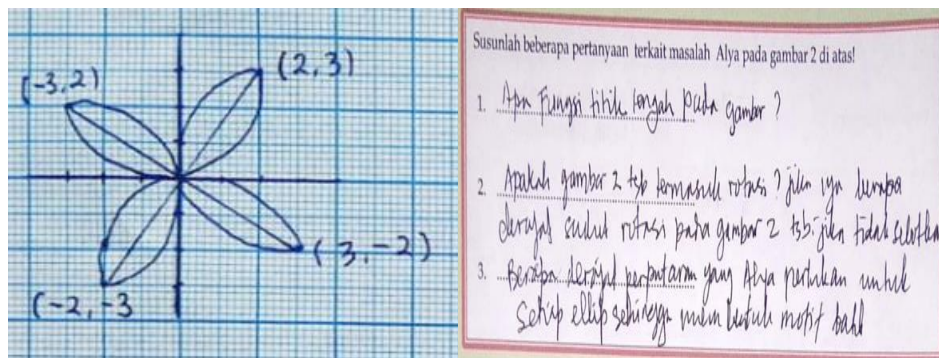 (-3,2)
(2,3)
(3,-2)
(-2,-3
Susunlah beberapa pertanyaan terkait masalah Alya pada gambar 2 di atas!
1. Apa Fungsi titik tengah Pada gambar ?
2. Apakah gambar 2 tsb termasuk rotasi ? jika iya berapa
derajat sudut rotasi pada gambar 2 tsb. jika tidak
3. Berapa derajat perputaran yang Alya perlukan untuk
Setiap ellip sehingga motif